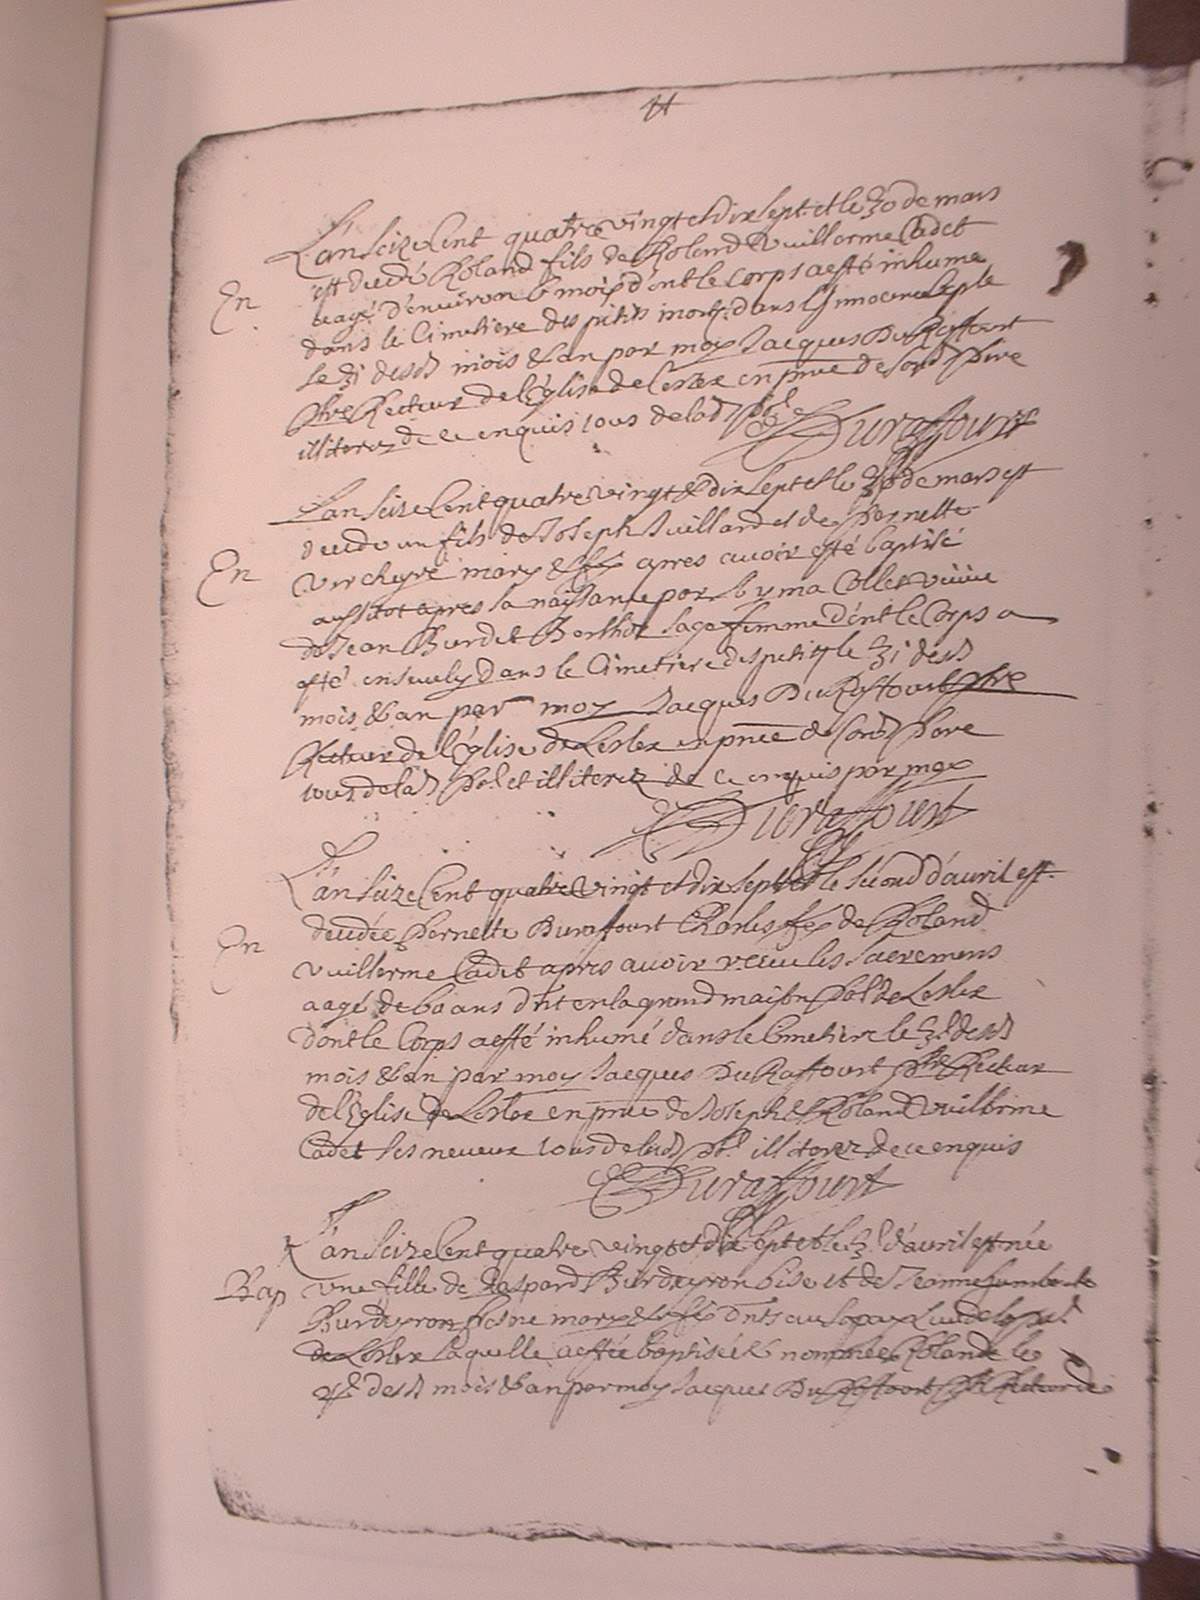 L'an seize Cent quatre vingt et dix sept et le 30 de mars
En
est decedé Roland fils de Roland Vuillerme Cadet
aagé d'environ 6 mois dont le corps a esté inhume
dans le Cimetiere des petits morts dans l'Innocence
le 31 desd mois & an par moy Jacques DuRaffourt
Pbre Recteur de l'Eglise de Leslex en pnce de sond Pere
illiterez de ce enquis tous de lad
Duraffourt
L'an seize Cent quatre vingt & dix sept et le 30 de mars est
decede un fils de Joseph Juillard et de Pernette
En
mary & fe apres avoir esté baptisé
aussitot apres sa naissance par Collet
de Jean Burdet sage femme dont le Corps a
esté ensevely dans le Cimetiere des petits le 31 desd
mois & an par moy Jacques DuRaffourt Pbre
Recteur de l'Eglise de Leslex en pnce de sond Pere
tous de lad et illiterez de ce enquis par moy
Duraffourt
L'an seize Cent quatre vingt et dix sept et le second d'avril est
decedée Pernette Duraffourt Charles fe de Roland
En
Vuillerme Cadet apres avoir receu les sacremens
aagé de 60 ans en la grand maison de Leslex
dont le Corps a esté inhumé dans le Cimetiere le 3e desd
mois & an par moy Jacques DuRaffourt Pbre Recteur
de l'Eglise de Leslex en pnce de Joseph & Roland Vuillerme
Cadet ses neveux tous de lad illiterez de ce enquis
Duraffourt
L'an seize Cent quatre vingt et dix sept et le d'avril est née
Bap
une fille de Gaspard Burdeyron et de Jeanne
Burdeyron mary & fe de la
de Leslex laquelle a esté baptisée & nommée Rolande le
desd mois & an par moy Jacques DuRaffourt Recteur de